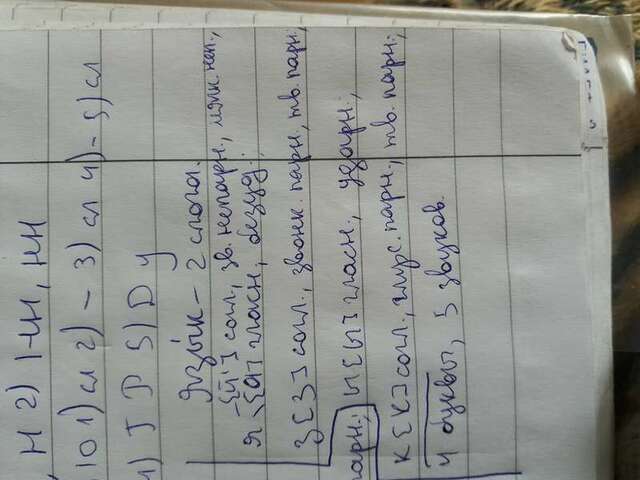 Н 2) 1-чн, нн
10 1) сл 2) - 3) сл 4) - 5) сл
J D S) D y
Язык - 2 слога.
Я -[й'] согл., зв. непарн., мягк. неп.,
[а] гласн, безуд;
З [З] согл., звонк. парн, тв. парн;
парн; Ы [ы] гласн., ударн;
К [К] согл., глух. парн., тв. парн;
4 буквы, 5 звуков.